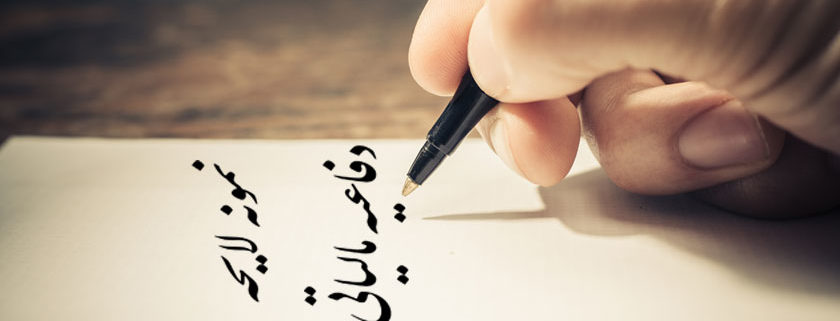 نمونه لایحه
دفاعیه مالیاتی